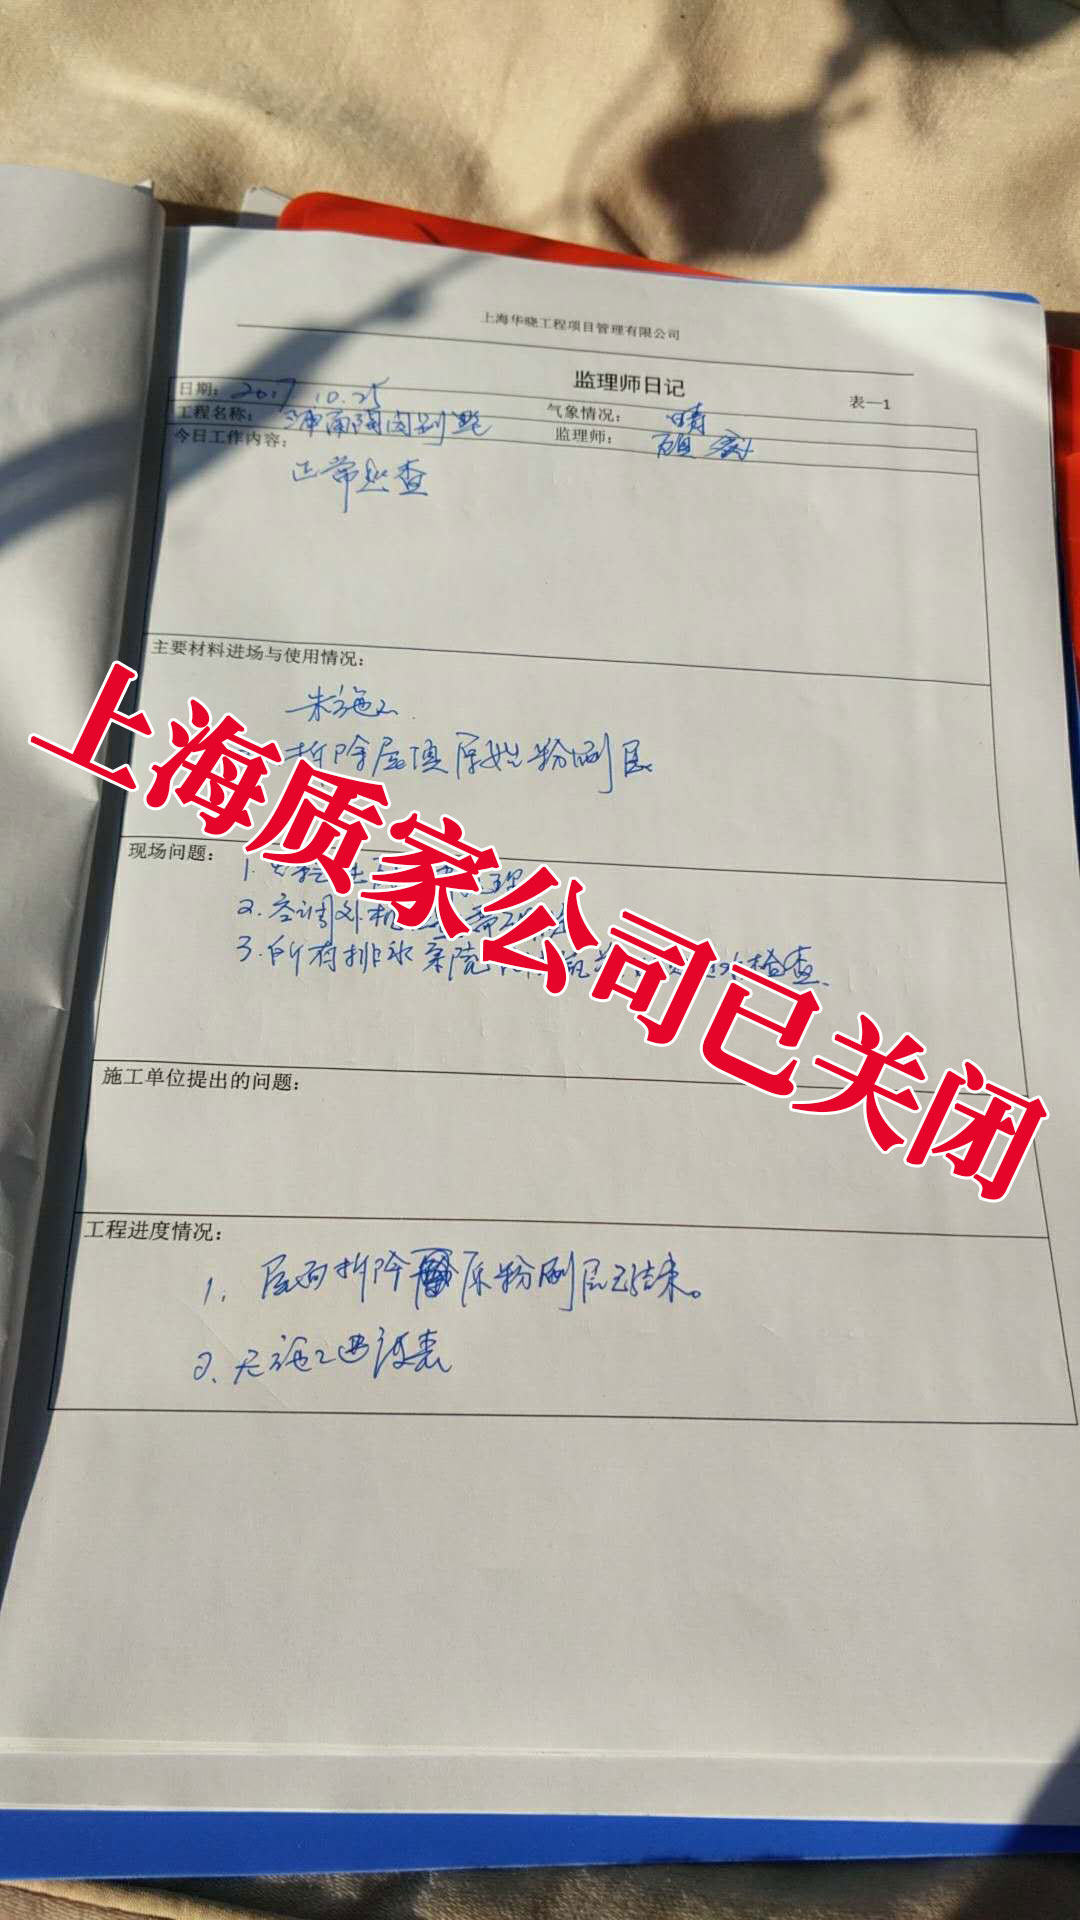 上海华晓工程项目管理有限公司
监理师日记
表一1
日期: 2017.10.25
气象情况: 晴
工程名称: 别墅
监理师:
今日工作内容:
正常巡查
主要材料进场与使用情况:
未施工.
拆除屋顶原始粉刷层
现场问题:
1.
2.空调外机
3.所有排水系统 检查.
施工单位提出的问题:
工程进度情况:
1. 屋面拆除 原粉刷层已结束。
2. 无施工进度表
上海质家公司已关闭